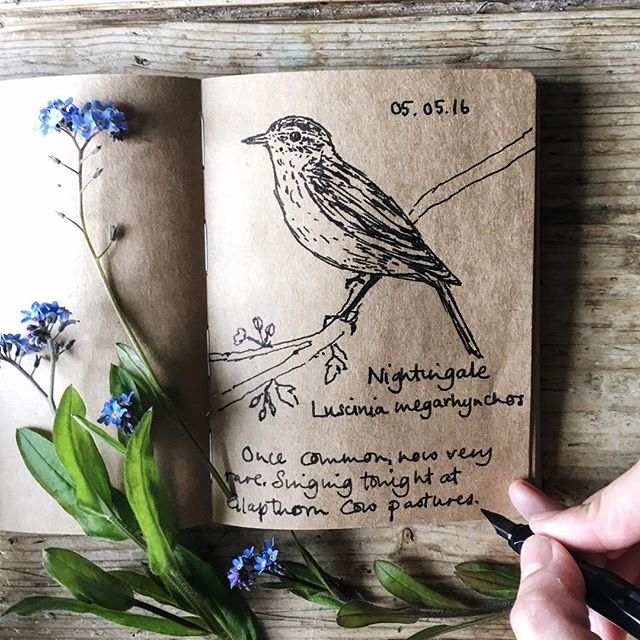 05.05.16
Nightingale
Luscinia megarhynchos
Once common, now very
rare. Singing tonight at
Glapthorn Cow pastures.